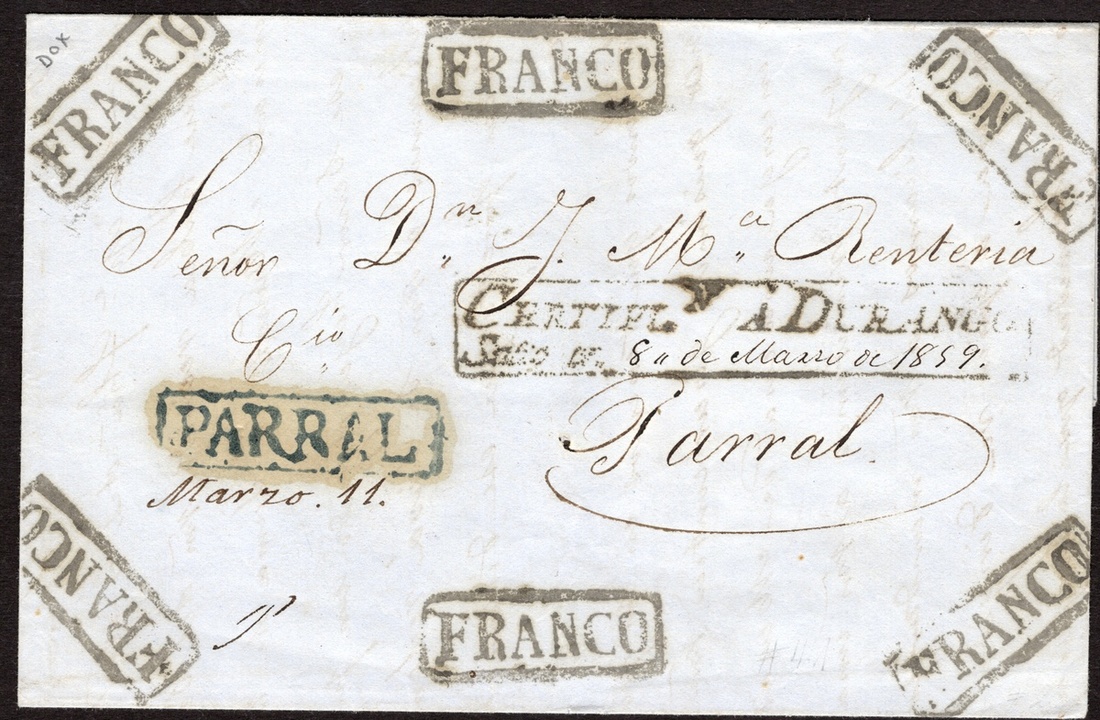 DOX
FRANCO
FRANCO
FRANCO
Señor Dn. J. Ma. Renteria
CERTIFI.N A DURANGO
8 de Marzo de 1859.
Cio
PARRAL
Parral
Marzo. 11.
FRANCO
FRANCO
FRANCO